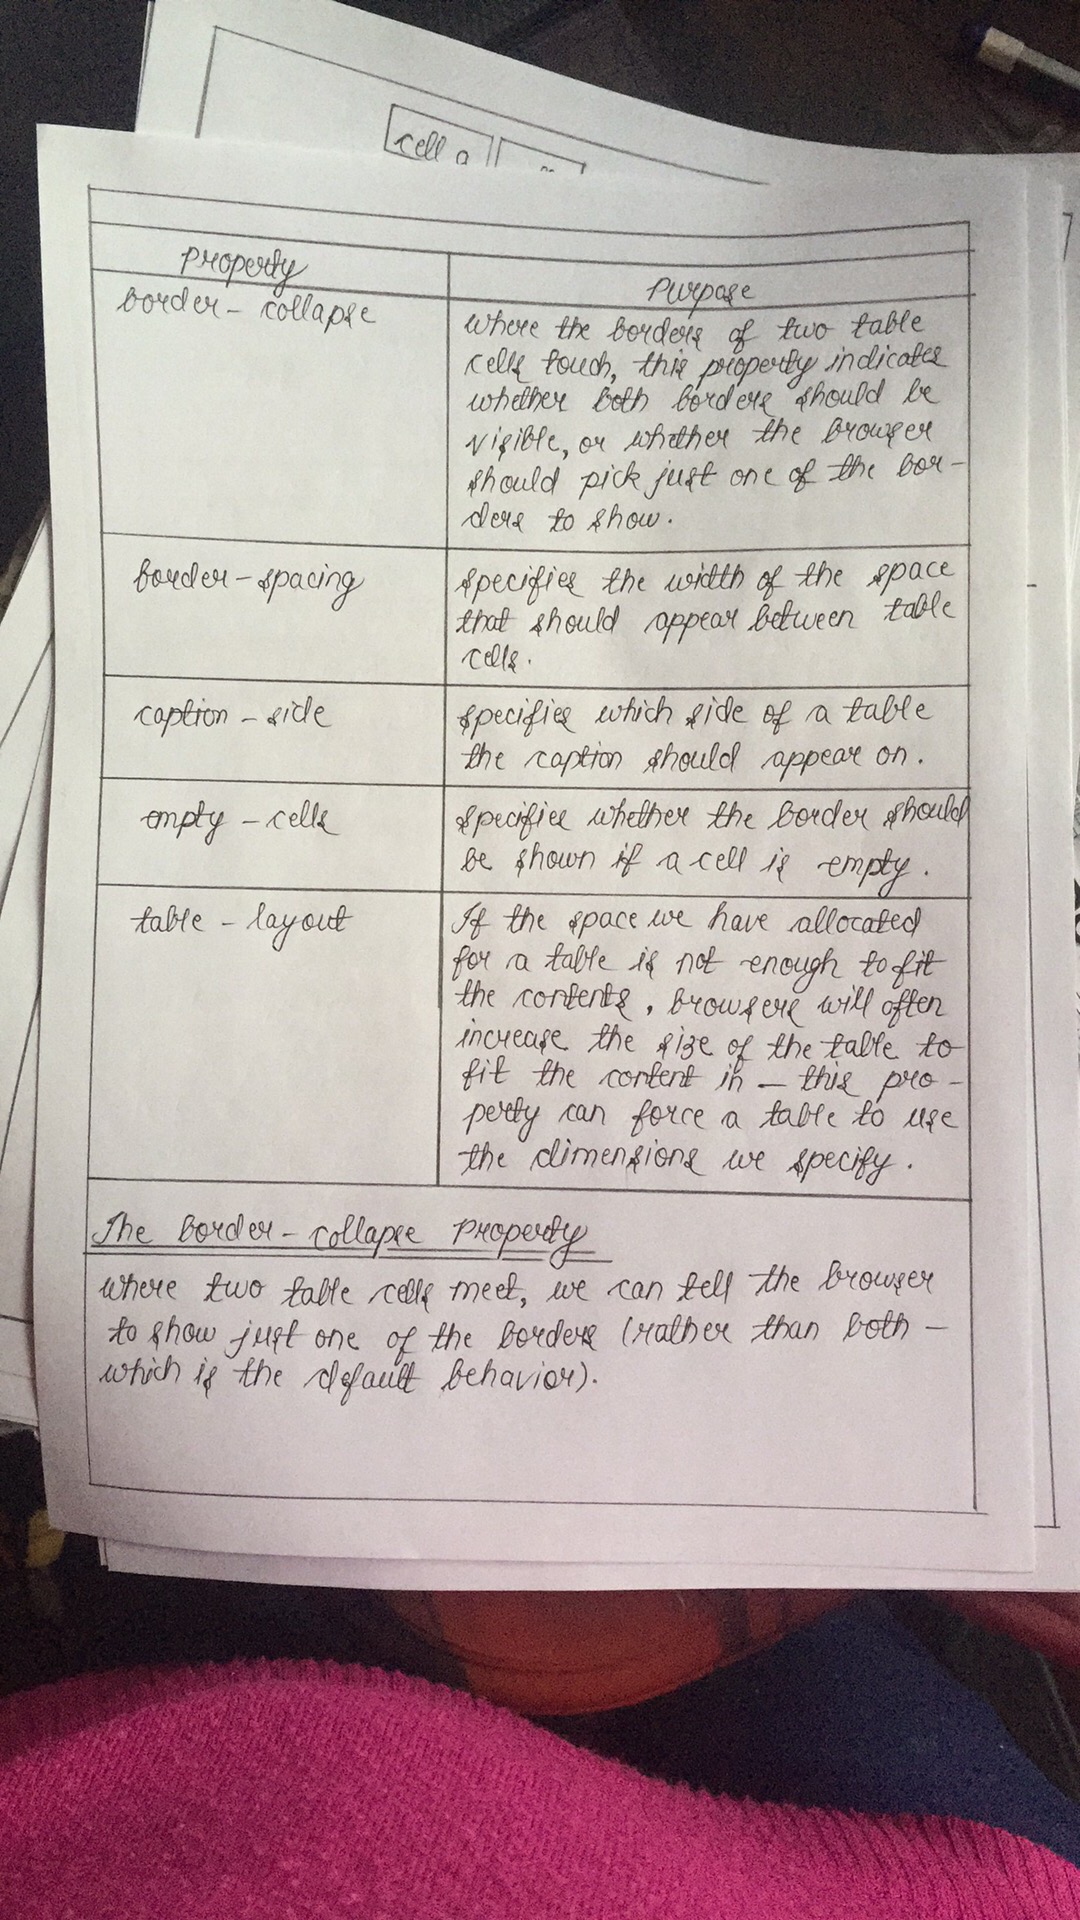 cell a
Property
Purpose
border - collapse
where the borders of two table
cells touch, this property indicates
whether both borders should be
visible, or whether the browser
should pick just one of the bor-
ders to show.
border - spacing
specifies the width of the space
that should appear between table
cells.
caption - side
specifies which side of a table
the caption should appear on.
empty - cells
specifies whether the border should
be shown if a cell is empty.
table - layout
If the space we have allocated
for a table is not enough to fit
the contents, browsers will often
increase the size of the table to
fit the content in - this pro-
perty can force a table to use
the dimensions we specify.
The border - collapse Property
where two table cells meet, we can tell the browser
to show just one of the borders (rather than both -
which is the default behavior).